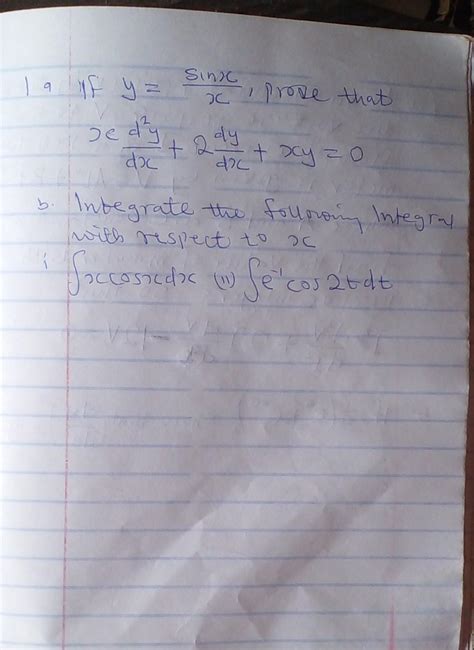 1 a If y = sinx/x, prove that
x d²y/dx + 2 dy/dx + xy = 0
b. Integrate the following Integral
with respect to x
i ∫xcosxdx (ii) ∫e⁻¹cos2tdt